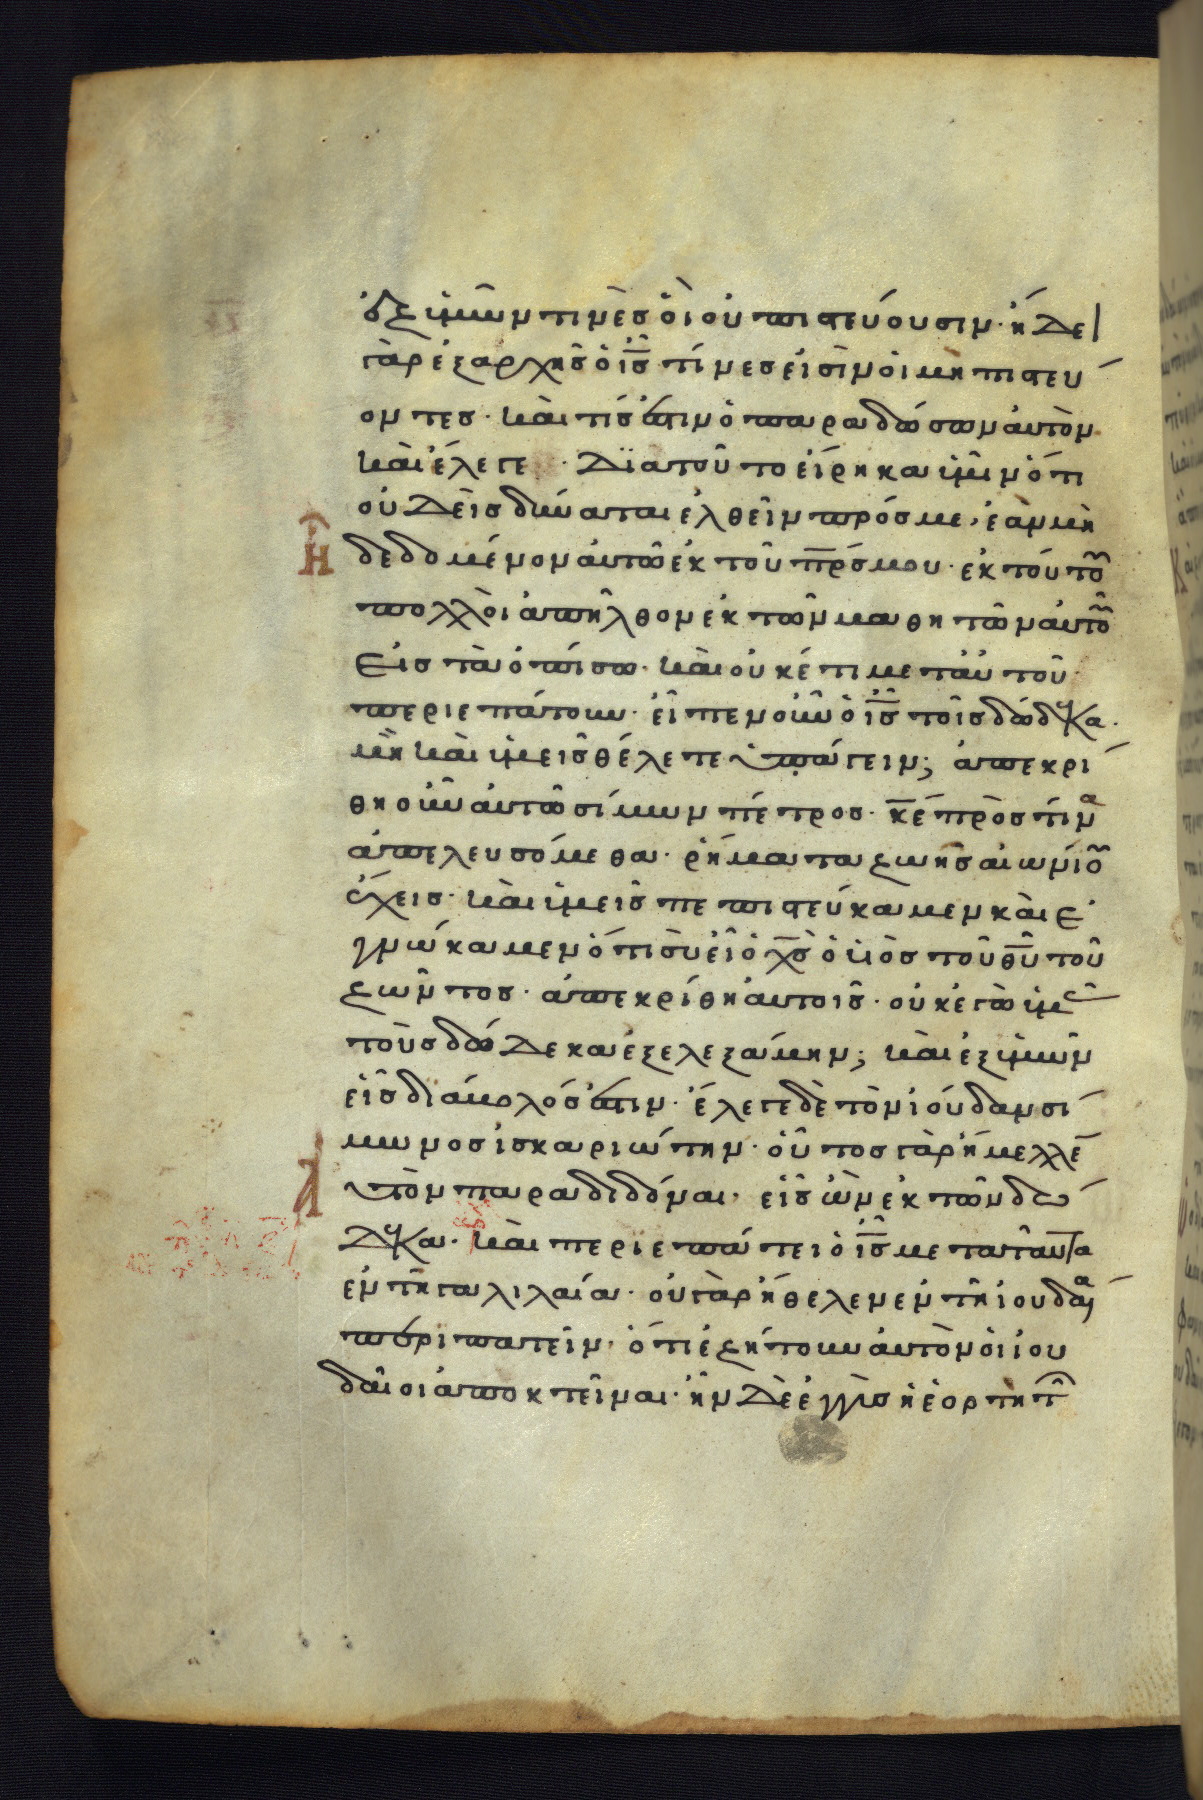 ἐξ ὑμῶν τινὲς οἳ οὐ πιστεύουσιν· ἤδει
γὰρ ἐξαρχῆς ὁ ις̅ τίνες εἰσὶν οἱ μὴ πιστεύ
οντες· καὶ τίς ἐστιν ὁ παραδώσων αὐτὸν
καὶ ἔλεγε · Διατοῦτο εἴρηκα ὑμῖν ὅτι
οὐδεὶς δύναται ἐλθεῖν πρός με, ἐὰν μὴ
ἦ δεδομένον αὐτῶ ἐκ τοῦ πρ̅ς μου· ἐκ τούτου
πολλοὶ ἀπῆλθον ἐκ τῶν μαθητῶν αὐτοῦ
εἰς τὰ ὀπίσω· καὶ οὐκέτι μετ αὐτοῦ
περιεπάτουν· εἶπεν οὖν ὁ ις̅ τοῖς δώδεκα·
μὴ καὶ ὑμεῖς θέλετε ὑπάγειν; ἀπεκρί
θη οὖν αὐτῶ σίμων πέτρος· κε̅ πρὸς τίνα
ἀπελευσόμεθα· ῥήματα ζωῆς αἰωνίου
ἔχεις· καὶ ἡμεῖς πεπιστεύκαμεν καὶ ἐ
γνώκαμεν ὅτι σὺ εἶ ὁ χς̅ ὁ υἱὸς τοῦ θυ̅ τοῦ
ζῶντος· ἀπεκρίθη αὐτοῖς· οὐκ ἐγὼ ὑμᾶς
τοὺς δώδεκα ἐξελεξάμην; καὶ ἐξ ὑμῶν
εἷς διάβολός ἐστιν· ἔλεγε δὲ τὸν ἰούδαν σί
μωνος ἰσκαριώτην· οὗτος γὰρ ἤμελλεν
αὐτὸν παραδιδόναι· εἷς ὢν ἐκ τῶν δώ
δεκα· Καὶ περιεπάτει ὁ ις̅ μετα ταῦτα
ἐν τῆ γαλιλαία· οὐ γὰρ ἤθελεν ἐν τῆ ἰουδαία
περιπατεῖν· ὅτι ἐζήτουν αὐτὸν οἱ ἰου
δαῖοι ἀποκτεῖναι· ἦν δὲ ἐγγὺς ἡ ἑορτὴ τῶν